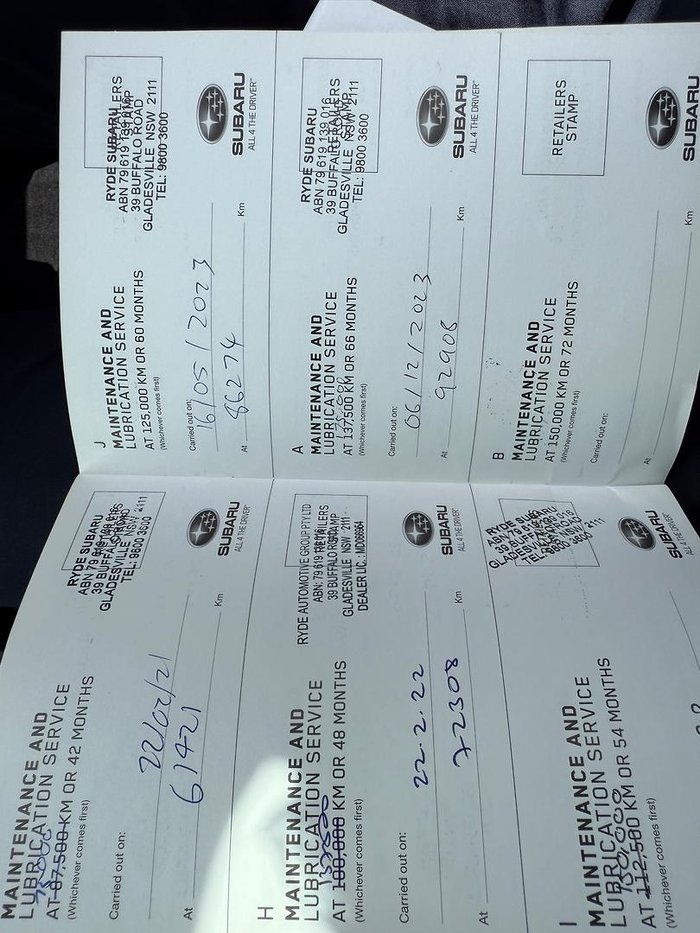 MAINTENANCE AND
LUBRICATION SERVICE
75,000
AT 87,500 KM OR 42 MONTHS
(Whichever comes first)
Carried out on:
22/02/21
At 61421 Km
RYDE SUBARU
39 BUFFALO ROAD
GLADESVILLE NSW 2111
TEL: 9800 3600
SUBARU
ALL 4 THE DRIVER
H
MAINTENANCE AND
LUBRICATION SERVICE
AT 100,000 KM OR 48 MONTHS
(Whichever comes first)
Carried out on:
22.2.22
At 72308 Km
RYDE AUTOMOTIVE GROUP PTY LTD
ABN: 79 619 139 016
39 BUFFALO ROAD
GLADESVILLE NSW 2111
DEALER LIC.: MD069864
SUBARU
ALL 4 THE DRIVER
I
MAINTENANCE AND
LUBRICATION SERVICE
AT 112,500 KM OR 54 MONTHS
(Whichever comes first)
SUBARU
ALL 4 THE DRIVER
J
MAINTENANCE AND
LUBRICATION SERVICE
AT 125,000 KM OR 60 MONTHS
(Whichever comes first)
Carried out on:
16/05/2023
At 86274 Km
RYDE SUBARU
ABN 79 619 139 016
39 BUFFALO ROAD
GLADESVILLE NSW 2111
TEL: 9800 3600
SUBARU
ALL 4 THE DRIVER
A
MAINTENANCE AND
LUBRICATION SERVICE
AT 137,500 KM OR 66 MONTHS
(Whichever comes first)
Carried out on:
06/12/2023
At 92908 Km
RYDE SUBARU
ABN 79 619 139 016
39 BUFFALO ROAD
GLADESVILLE NSW 2111
TEL: 9800 3600
SUBARU
ALL 4 THE DRIVER
B
MAINTENANCE AND
LUBRICATION SERVICE
AT 150,000 KM OR 72 MONTHS
(Whichever comes first)
Carried out on:
At Km
RETAILERS
STAMP
SUBARU
ALL 4 THE DRIVER